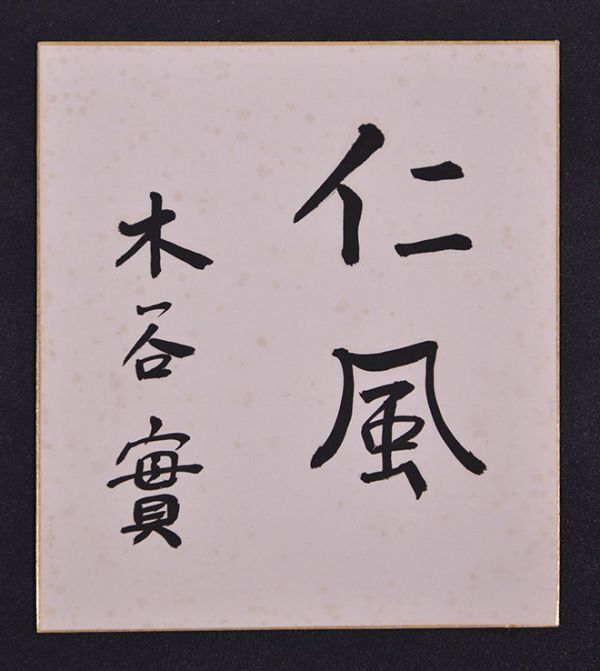 仁風
木谷實